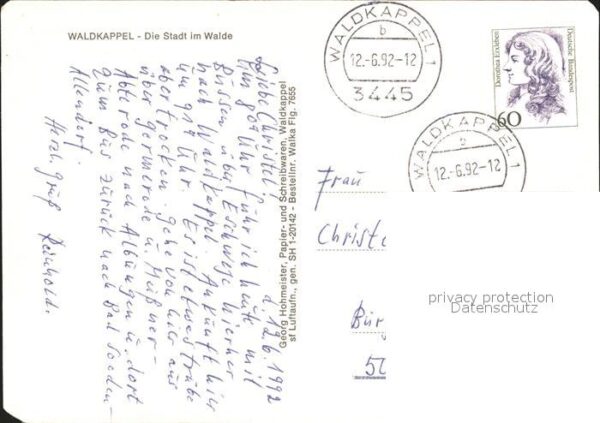 WALDKAPPEL - Die Stadt im Walde
d. 12.6.1992
Liebe Christel!
Um 8.04 Uhr fuhr ich heute mit
Bussen über Eschwege hierher
nach Waldkappel. Ankunft hier
um 9 Uhr. Es ist etwas trübe
aber trocken. Gehe von hier aus
über Germerode u. Meißner-
Abterode nach Albungen u. dort
zum Bus zurück nach Bad Sooden-
Allendorf.
Herzl. Gruß Reinhold.
Georg Hohmeister, Papier- und Schreibwaren, Waldkappel
sf Luftaufn., gen. SH 1-20142 - Bestellnr. Walka Flg. 7655
WALDKAPPEL 1
b
12.-6.92-12
3445
Dorothea Erxleben
Deutsche Bundespost
60
WALDKAPPEL 1
b
12.-6.92-12
Frau
Christe
Bür
52
privacy protection
Datenschutz